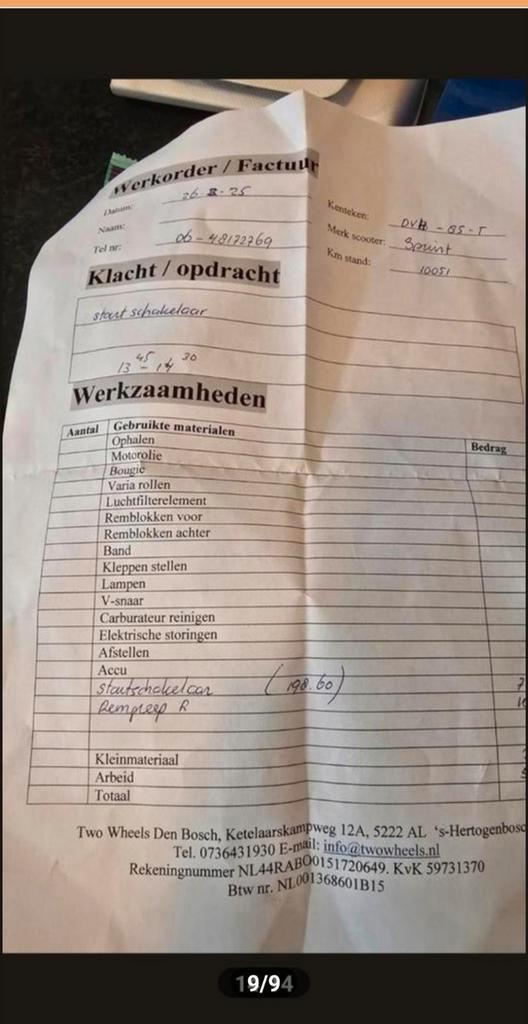 Werkorder / Factuur
Datum: 26-8-25
Naam:
Tel nr: 06-48172769
Kenteken: DVH-85-T
Merk scooter: Sprint
Km stand: 10051
Klacht / opdracht
start schakelaar
13 45 - 14 30
Werkzaamheden
Aantal Gebruikte materialen Bedrag
Ophalen
Motorolie
Bougie
Varia rollen
Luchtfilterelement
Remblokken voor
Remblokken achter
Band
Kleppen stellen
Lampen
V-snaar
Carburateur reinigen
Elektrische storingen
Afstellen
Accu
startschakelaar (198.60)
Remgreep R
Kleinmateriaal
Arbeid
Totaal
Two Wheels Den Bosch, Ketelaarskampweg 12A, 5222 AL 's-Hertogenbosc
Tel. 0736431930 E-mail: info@twowheels.nl
Rekeningnummer NL44RABO0151720649. KvK 59731370
Btw nr. NL001368601B15
19/94